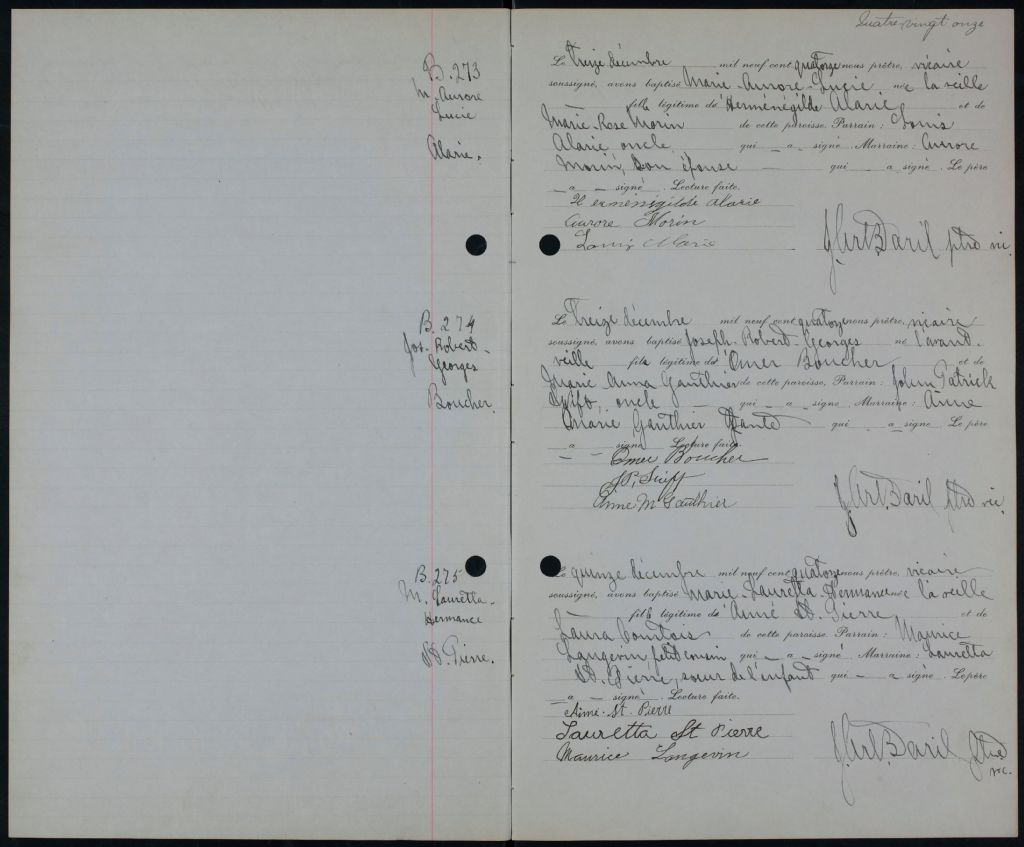 Quatre-vingt onze
B. 273
M. Aurore
Lucie
Alarie.
Le treize décembre mil neuf cent quatorze nous prêtre, vicaire
soussigné, avons baptisé Marie-Aurore-Lucie née la veille
fille légitime de Herménégilde Alarie et de
Marie-Rose Morin de cette paroisse. Parrain : Louis
Alarie oncle qui — a — signé. Marraine : Aurore
Morin, son épouse qui — a signé. Le père
— a — signé. Lecture faite.
Herménégilde Alarie
Aurore Morin
Louis Alarie
J. Art. Baril ptre vic.
B. 274
Jos. Robert-
Georges
Boucher.
Le treize décembre mil neuf cent quatorze nous prêtre, vicaire
soussigné, avons baptisé Joseph-Robert-Georges né l'avant-
veille fils légitime de Omer Boucher et de
Marie Anna Gauthier de cette paroisse. Parrain : John Patrick
Swift, oncle qui — a — signé. Marraine : Anne
Marie Gauthier tante qui — a — signé. Le père
— a — signé. Lecture faite.
Omer Boucher
J.P. Swift
Anne M Gauthier
J. Art. Baril ptre vic.
B. 275
M. Lauretta-
Hermance
St. Pierre.
Le quinze décembre mil neuf cent quatorze nous prêtre, vicaire
soussigné, avons baptisé Marie-Lauretta-Hermance née la veille
fille légitime de Aimé St. Pierre et de
Laura Courtois de cette paroisse. Parrain : Maurice
Langevin, petit cousin qui — a — signé. Marraine : Lauretta
St. Pierre, soeur de l'enfant qui — a signé. Le père
— a — signé. Lecture faite.
Aimé St. Pierre
Lauretta St Pierre
Maurice Langevin
J. Art. Baril ptre
vic.